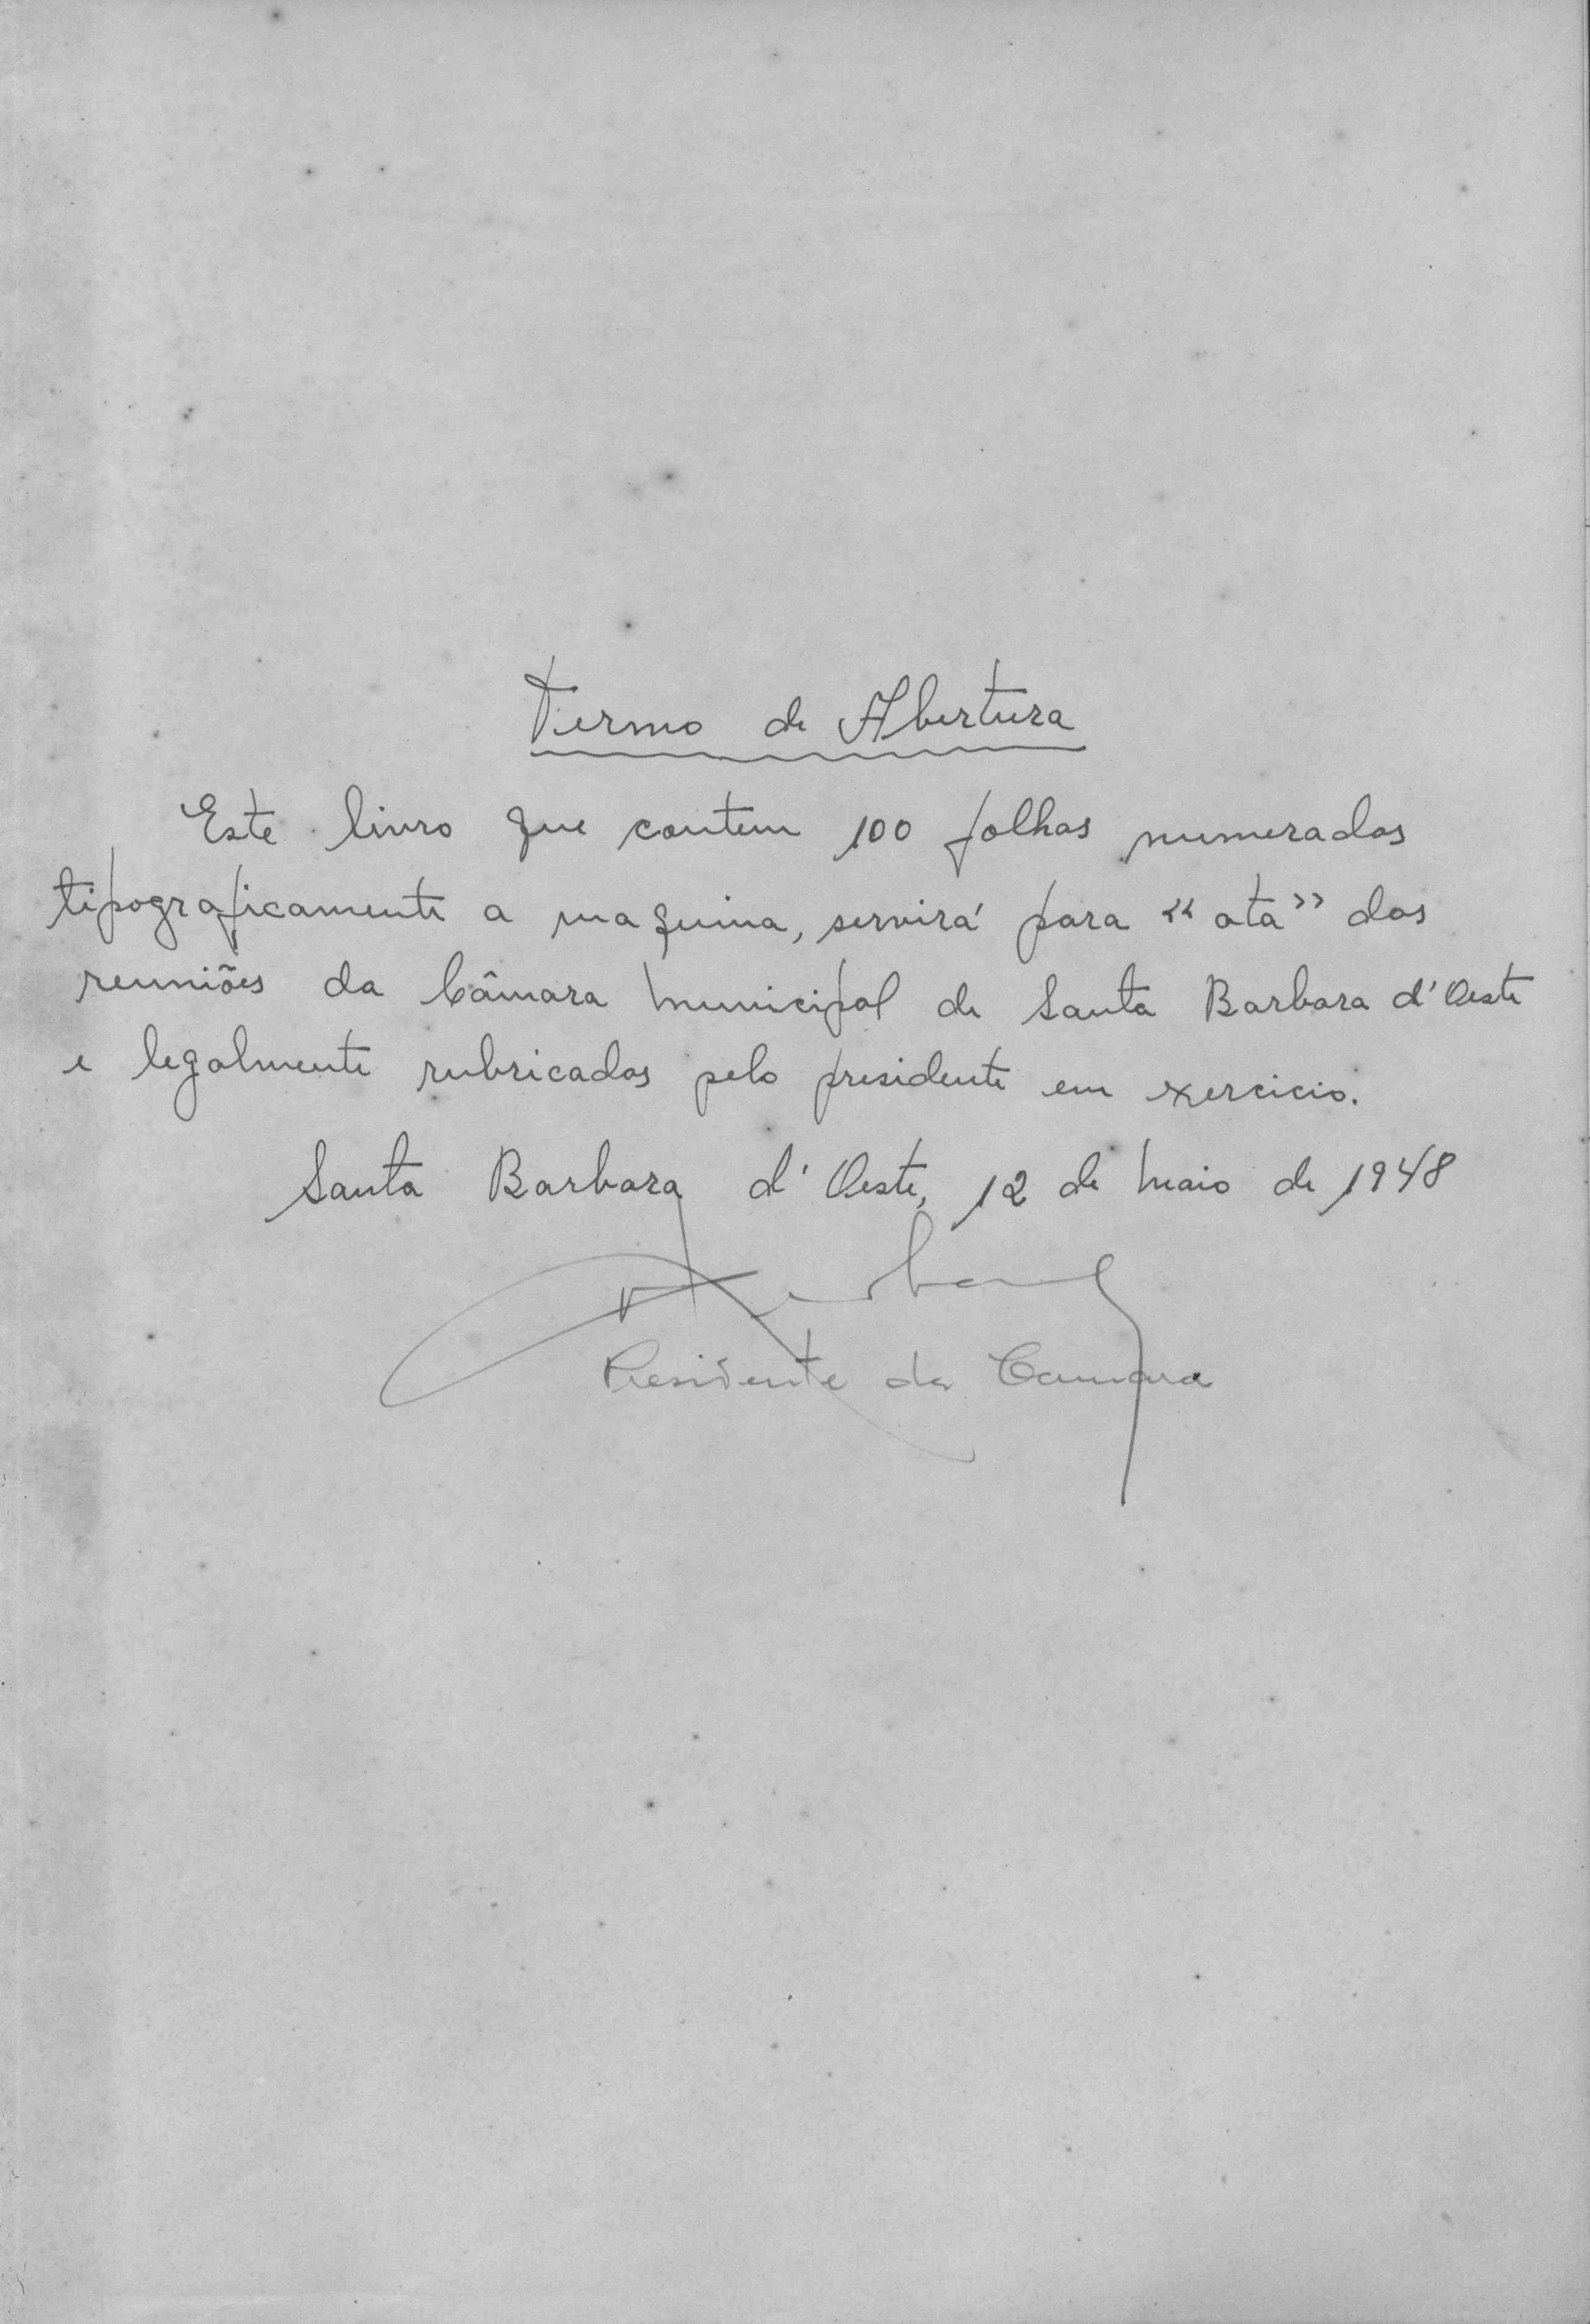 Termo de Abertura
Este livro que contem 100 folhas numeradas
tipograficamente a maquina, servirá para "ata" das
reuniões da Câmara Municipal de Santa Barbara d'Oeste
e legalmente rubricadas pelo presidente em exercicio.
Santa Barbara d'Oeste, 12 de Maio de 1948
Presidente da Camara